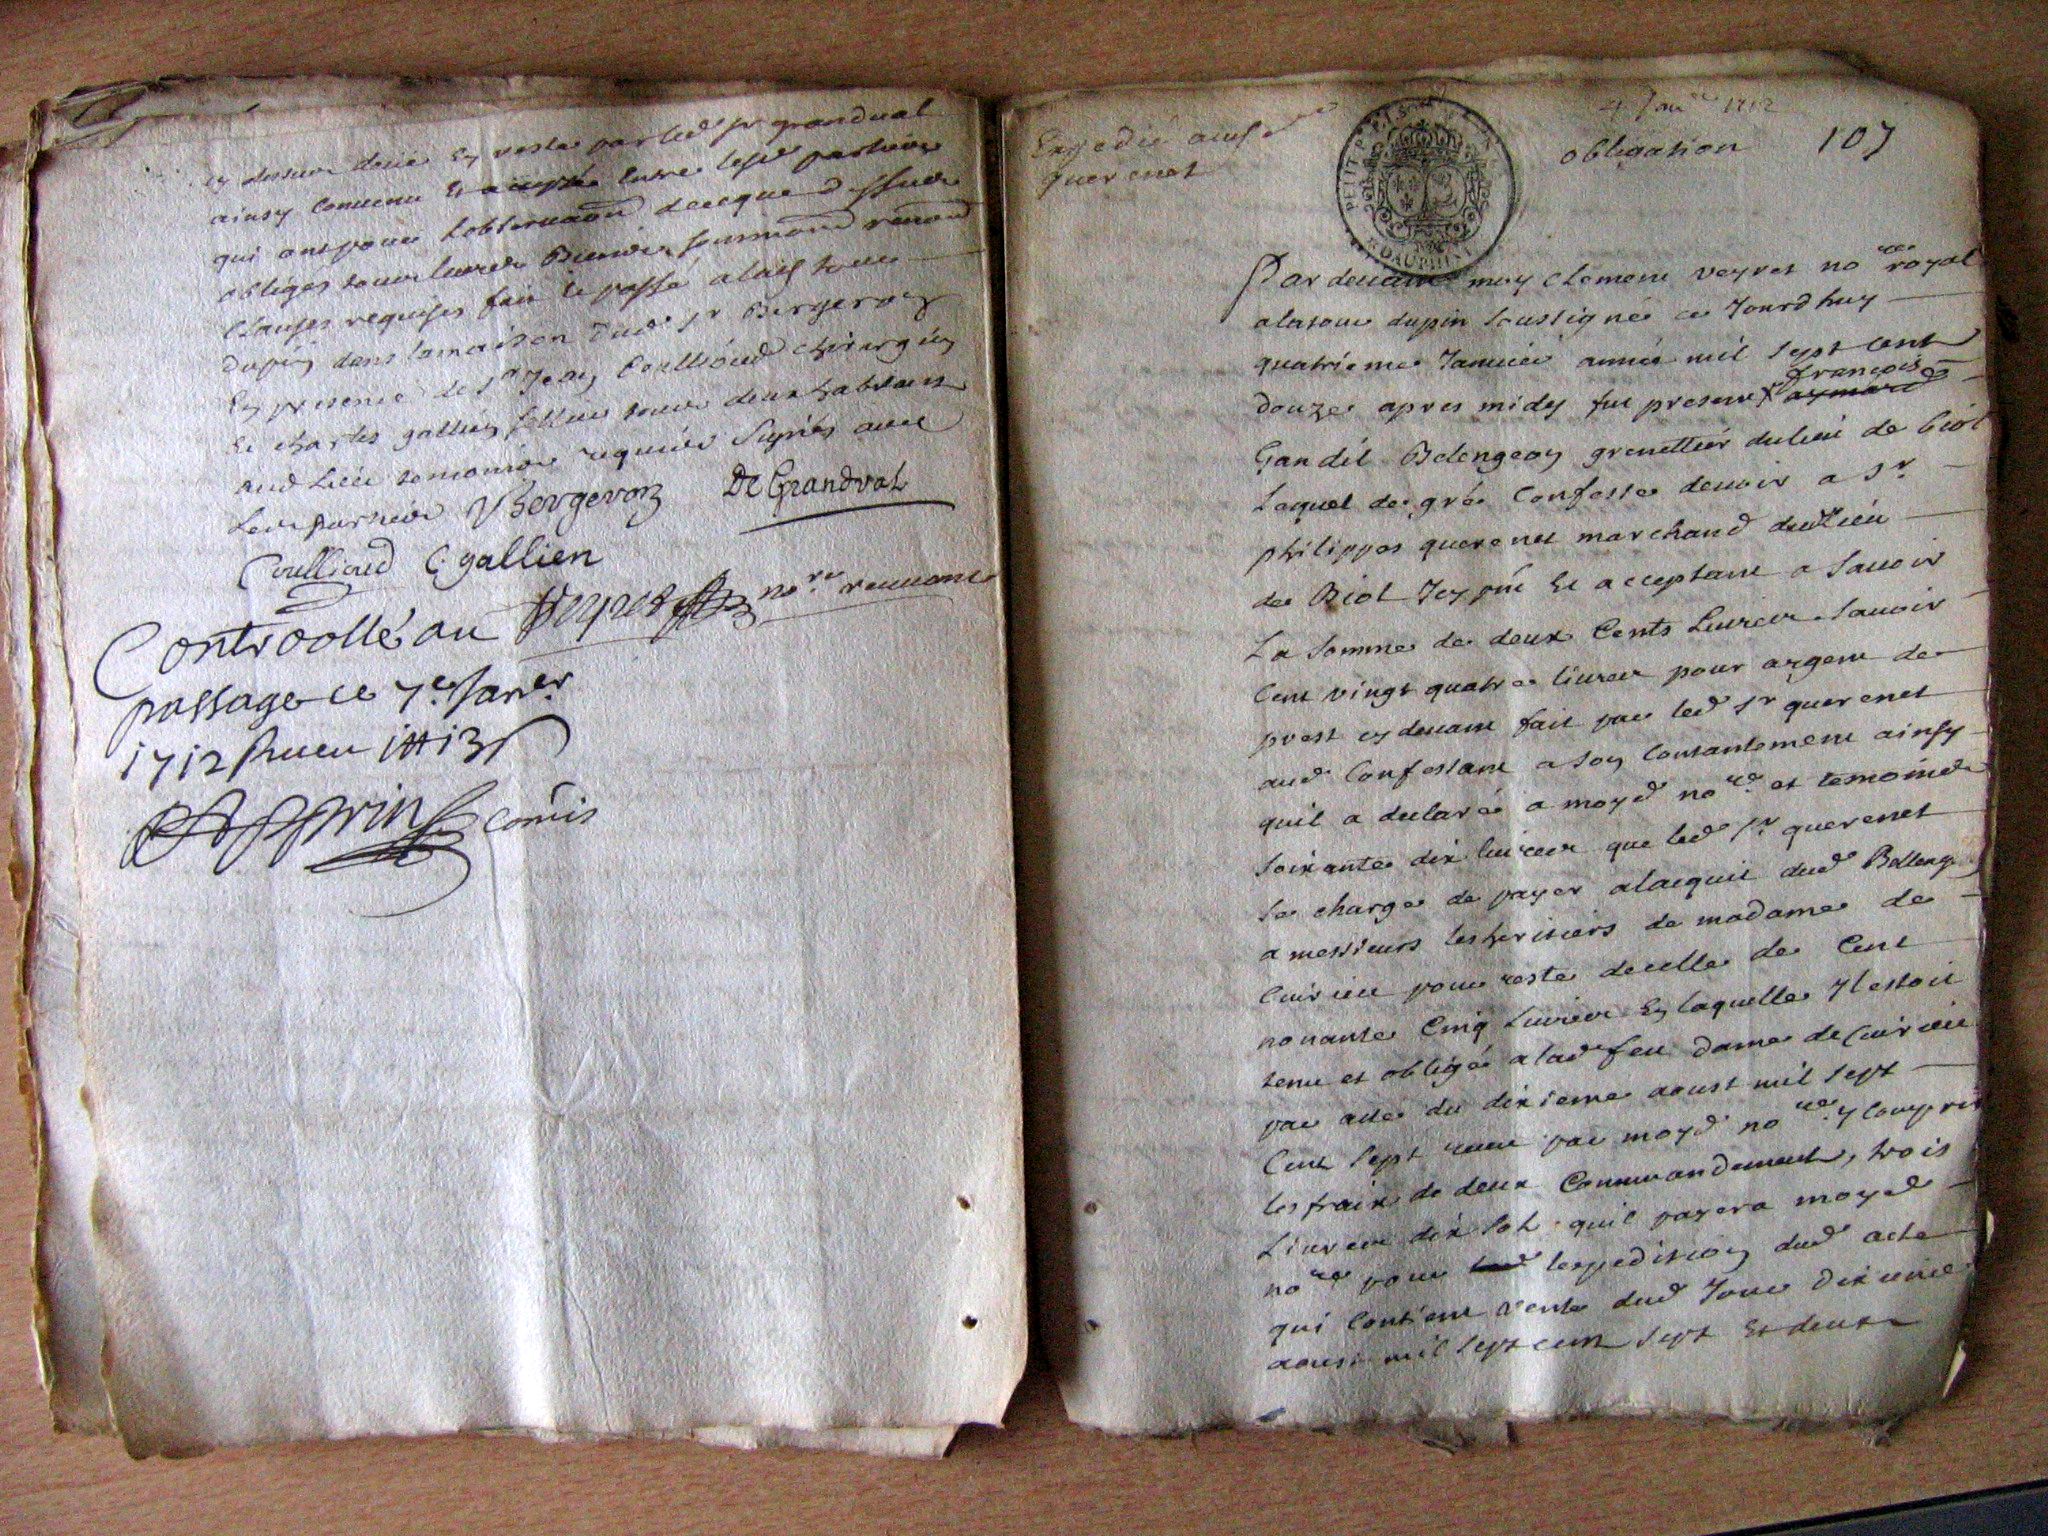 cy dessus deüe Et reste par led sr grandval
ainsy convenu Et entre lesd parties
qui ont pour Lobservaon de ce que dessus
obligés tous leurs Biens soumond renond
Clauses requises fait et passé a la tour
dupin dans la maison dud sr Bergeron
En presence de sr Jean Coullioud chirurgien
Et charles gallien tous deux habitants
aud Lieu temoins requis Signés avec
Les parties VBergeron De Grandval
Coullioud C. gallien
Veyret nore recevant
Controollé au
passage ce 7e Janer
1712 Receu
comis
Expedié aud sr
querenet
4 Janre 1712
obligation 107
PETIT PAPIER
DAUPHINE
Pardevant moy Clement veyret nore royal
a la tour dupin soussigné ce Jourdhuy
quatrieme Janvier année mil sept cent
douze apres midy fut present françois
aymard
Gandil Belengeon grenettier du lieu de biol
Lequel de gré Confesse devoir a Sr
philippes querenet marchand dud lieu
de Biol Icy pnt Et acceptant a Savoir
La Somme de deux Cents Livres Savoir
Cent vingt quatre livres pour argent de
prest cy devant fait par led Sr querenet
aud Confessant a son Contantement ainsy
quil a declaré a moyd nore et temoins
soixante dix livres que led Sr querenet
se charge de payer a lacquit dud Belleng
a messieurs les heritiers de madame de
Cuirieu pour reste de celle de Cent
nonante Cinq Livres En laquelle Il estoit
tenu et obligé a lad feu dame de Cuirieu
par acte du dixieme aoust mil sept
Cent Sept receu par moyd nore y Compris
les fraix de deux Commandements, trois
Livres dix sols quil payera moyd
nore pour lexpedition dud acte
qui Contient vente dud Jour dixieme
aoust mil Sept cent Sept Et deux